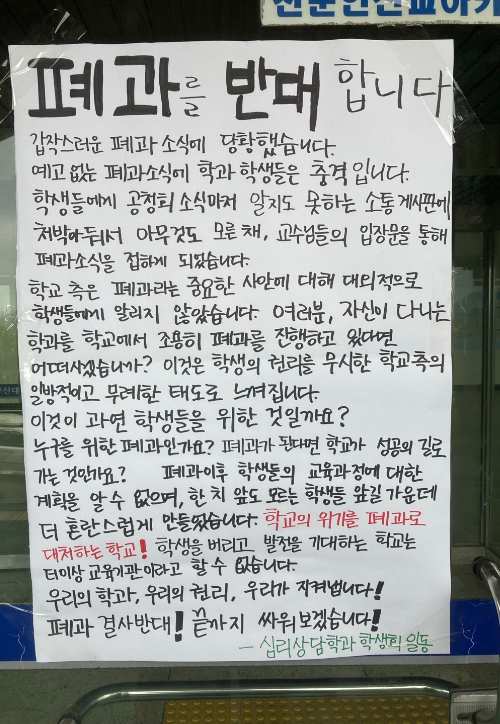 폐과를 반대 합니다
갑작스러운 폐과 소식에 당황했습니다.
예고 없는 폐과소식에 학과 학생들은 충격입니다.
학생들에게 공청회 소식마저 알지도 못하는 소통 게시판에
처박아둬서 아무것도 모른 채, 교수님들의 입장문을 통해
폐과소식을 접하게 되었습니다.
학교 측은 폐과라는 중요한 사안에 대해 대외적으로
학생들에게 알리지 않았습니다. 여러분, 자신이 다니는
학과를 학교에서 조용히 폐과를 진행하고 있다면
어떠시겠습니까? 이것은 학생의 권리를 무시한 학교측의
일방적이고 무례한 태도로 느껴집니다.
이것이 과연 학생들을 위한 것일까요?
누구를 위한 폐과인가요? 폐과가 된다면 학교가 성공의 길로
가는 것인가요? 폐과이후 학생들의 교육과정에 대한
계획을 알 수 없으며, 한 치 앞도 모르는 학생들 앞길 가운데
더 혼란스럽게 만들었습니다. 학교의 위기를 폐과로
대처하는 학교! 학생을 버리고 발전을 기대하는 학교는
더이상 교육기관이라고 할 수 없습니다.
우리의 학과, 우리의 권리, 우리가 지켜냅니다!
폐과 결사반대! 끝까지 싸워보겠습니다!
- 심리상담학과 학생회 일동